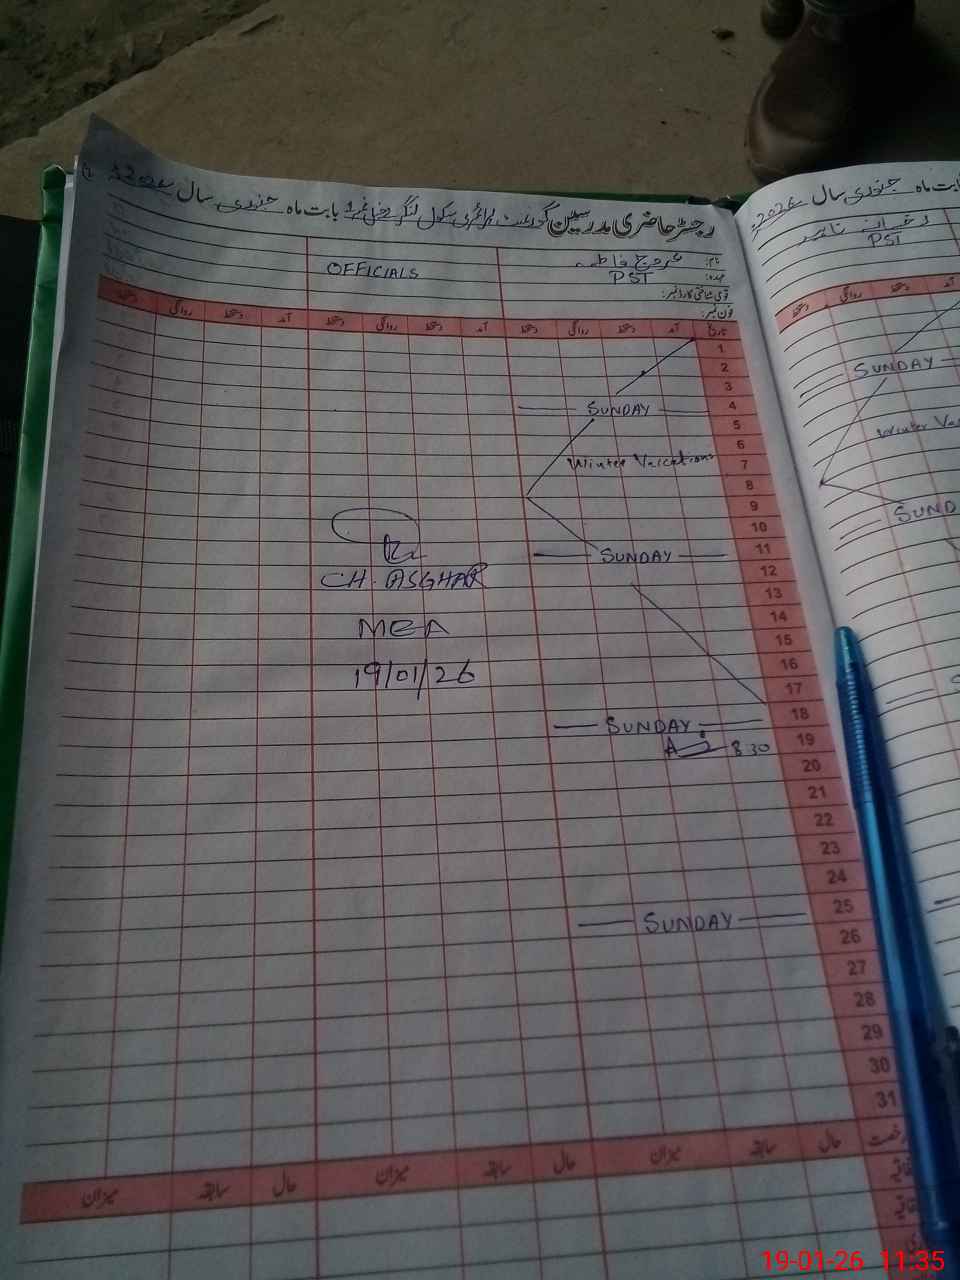 رجسٹر حاضری مدرسین گورنمنٹ پرائمری سکول لنگر بابت ماہ جنوری سال 2026
نام: عروج فاطمہ
OFFICIALS
عہدہ: PST
قومی شناختی کارڈ نمبر:
فون نمبر:
تاریخ آمد دستخط روانگی دستخط آمد دستخط روانگی دستخط آمد دستخط روانگی دستخط
1
2
3
4 SUNDAY
5
6
7 Winter Vaications
8
9
10
11 SUNDAY
12
13
14
15
16
17
18 SUNDAY
19 8:30
20
21
22
23
24
25 SUNDAY
26
27
28
29
30
31
CH. ASGHAR
MEA
19/01/26
رخصت حال سابقہ میزان حال سابقہ میزان حال سابقہ میزان
بابت ماہ جنوری سال 2026
PST
آمد دستخط روانگی دستخط
SUNDAY
Winter Va
SUND
S
19-01-26 11:35